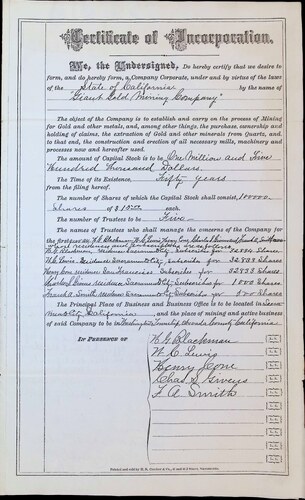 Certificate of Incorporation.
We, the Undersigned, Do hereby certify that we desire to
form, and do hereby form, a Company Corporate, under and by virtue of the laws
of the State of California by the name of
"Giant Gold Mining Company"
The object of the Company is to establish and carry on the process of Mining
for Gold and other metals, and, among other things, the purchase, ownership and
holding of claims, the extraction of Gold and other minerals from quartz, and,
to that end, the construction and erection of all necessary mills, machinery and
processes now and hereafter used.
The amount of Capital Stock is to be One Million and Five
Hundred Thousand Dollars.
The Time of its Existence, Fifty years
from the filing hereof.
The number of Shares of which the Capital Stock shall consist,
Shares each.
The number of Trustees to be Five
The names of Trustees who shall manage the concerns of the Company for
the first
W. C. Lewis Residence Sacramento City Subscribes for Shares
Henry Cone Residence San Francisco Subscribes for Shares
Residence Sacramento City Subscribes for 1000 Shares
A. Smith Residence Sacramento City Subscribes for Shares
The Principal Place of Business and Business Office is to be located in
California, and the place of mining and active business
of said Company to be in Washington Township Nevada County California
In Presence of
W. G. Blackman
W. C. Lewis
Henry Cone
Chas. S.
F. A. Smith